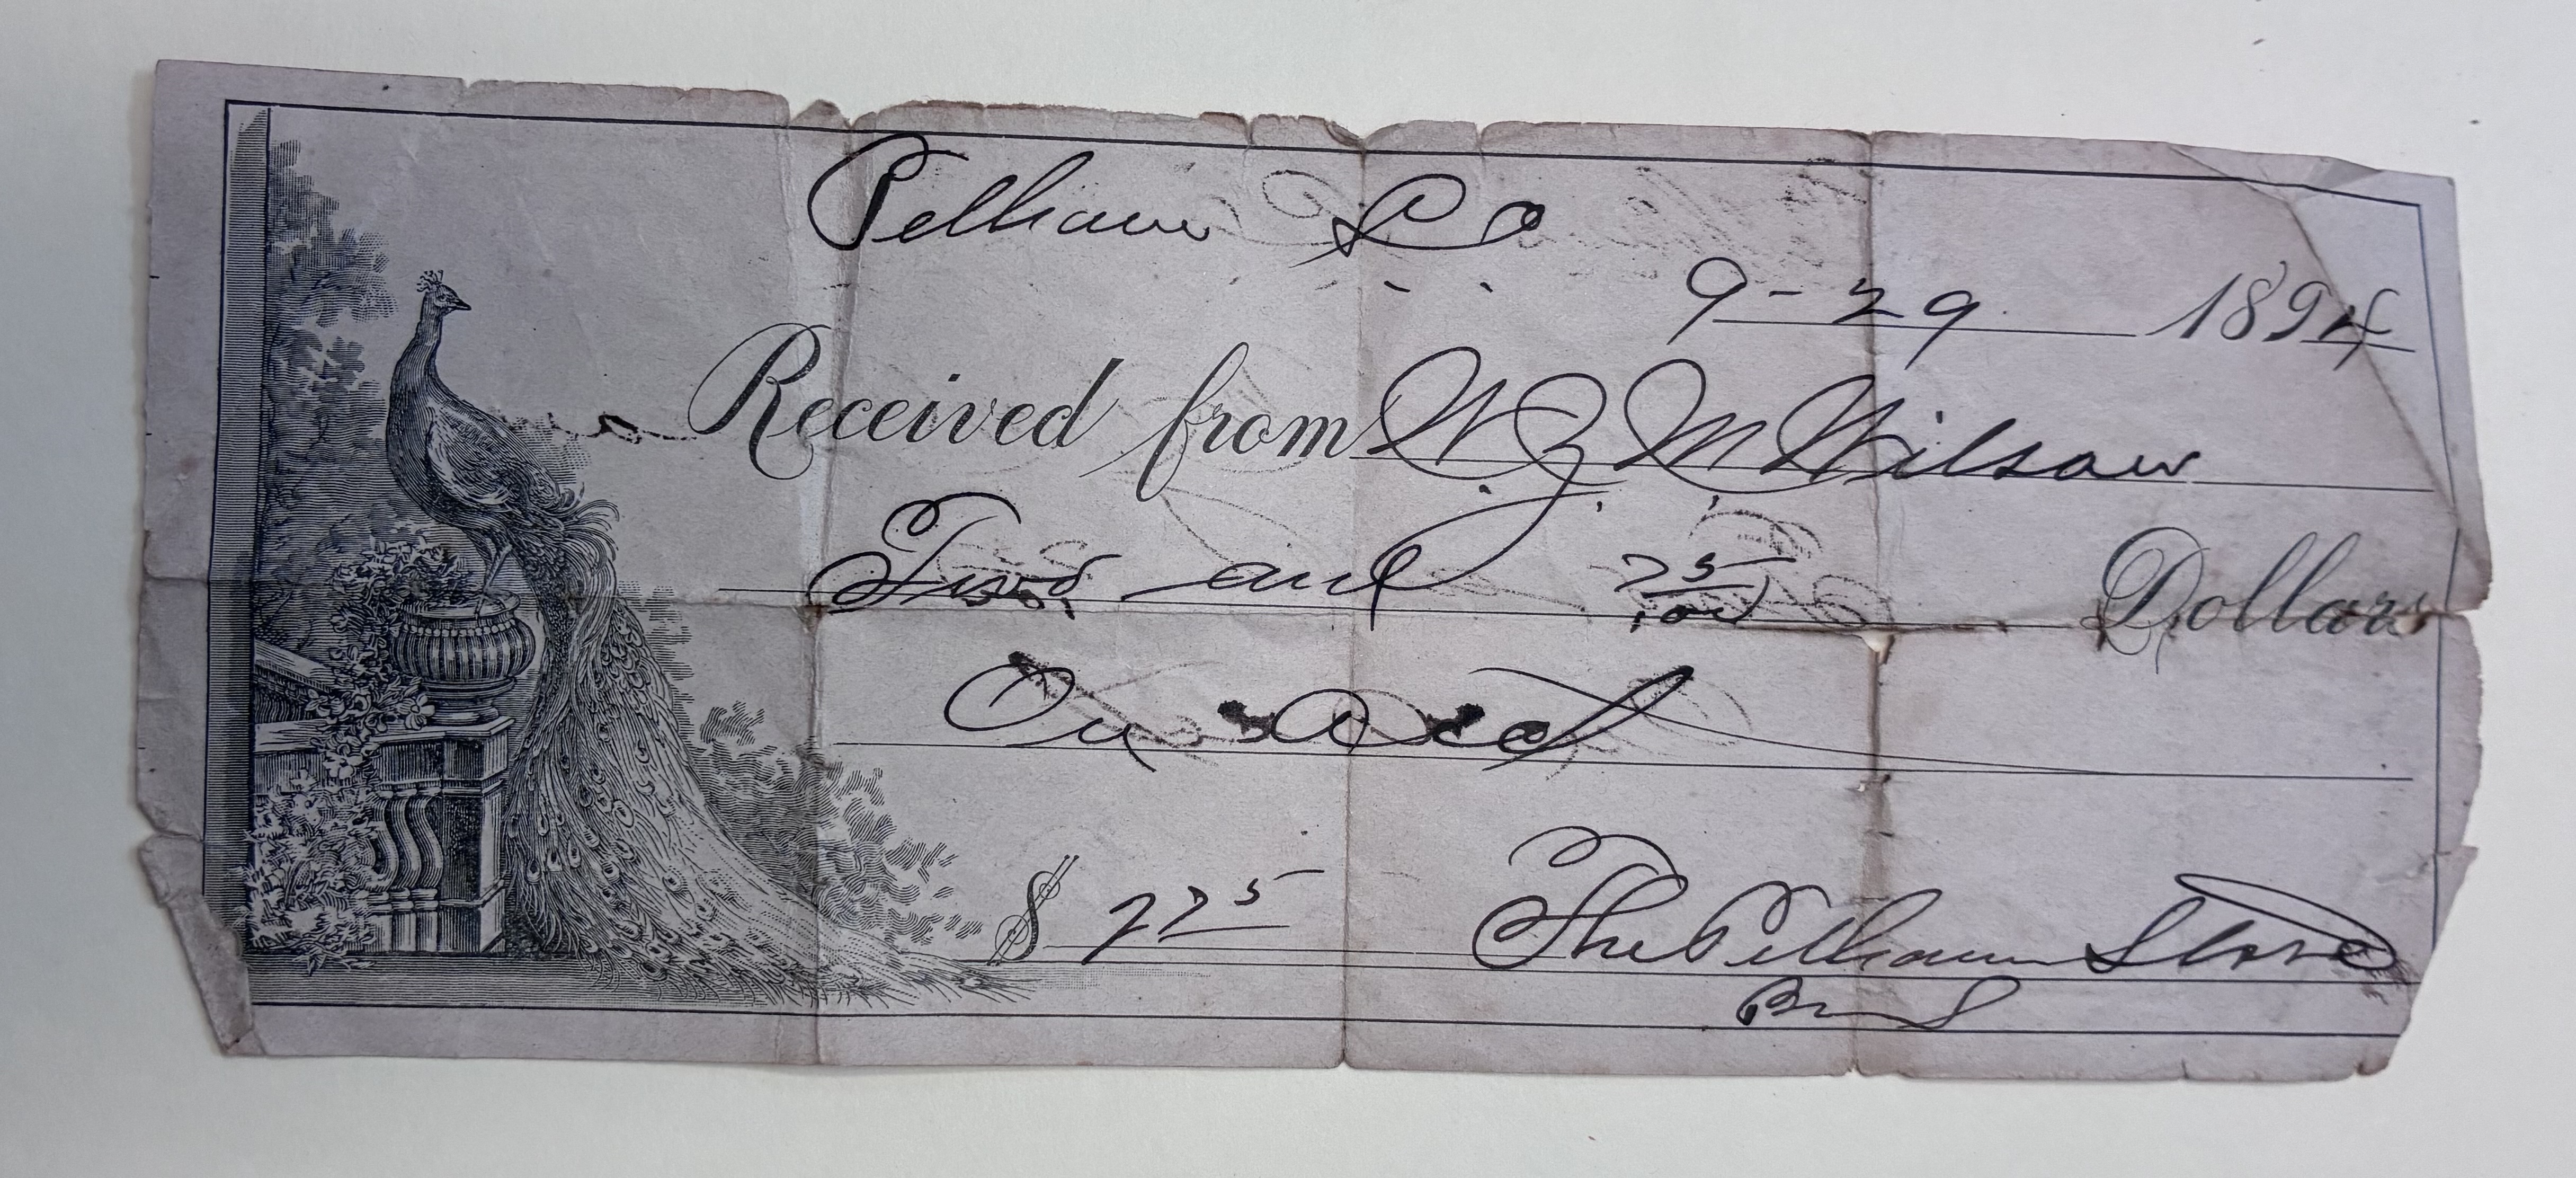 Pelham S C
9-29 1894
Received from W Z M Wilson
Two and 75/100 Dollars
On Acct
$ 2 75 The Pelham Store